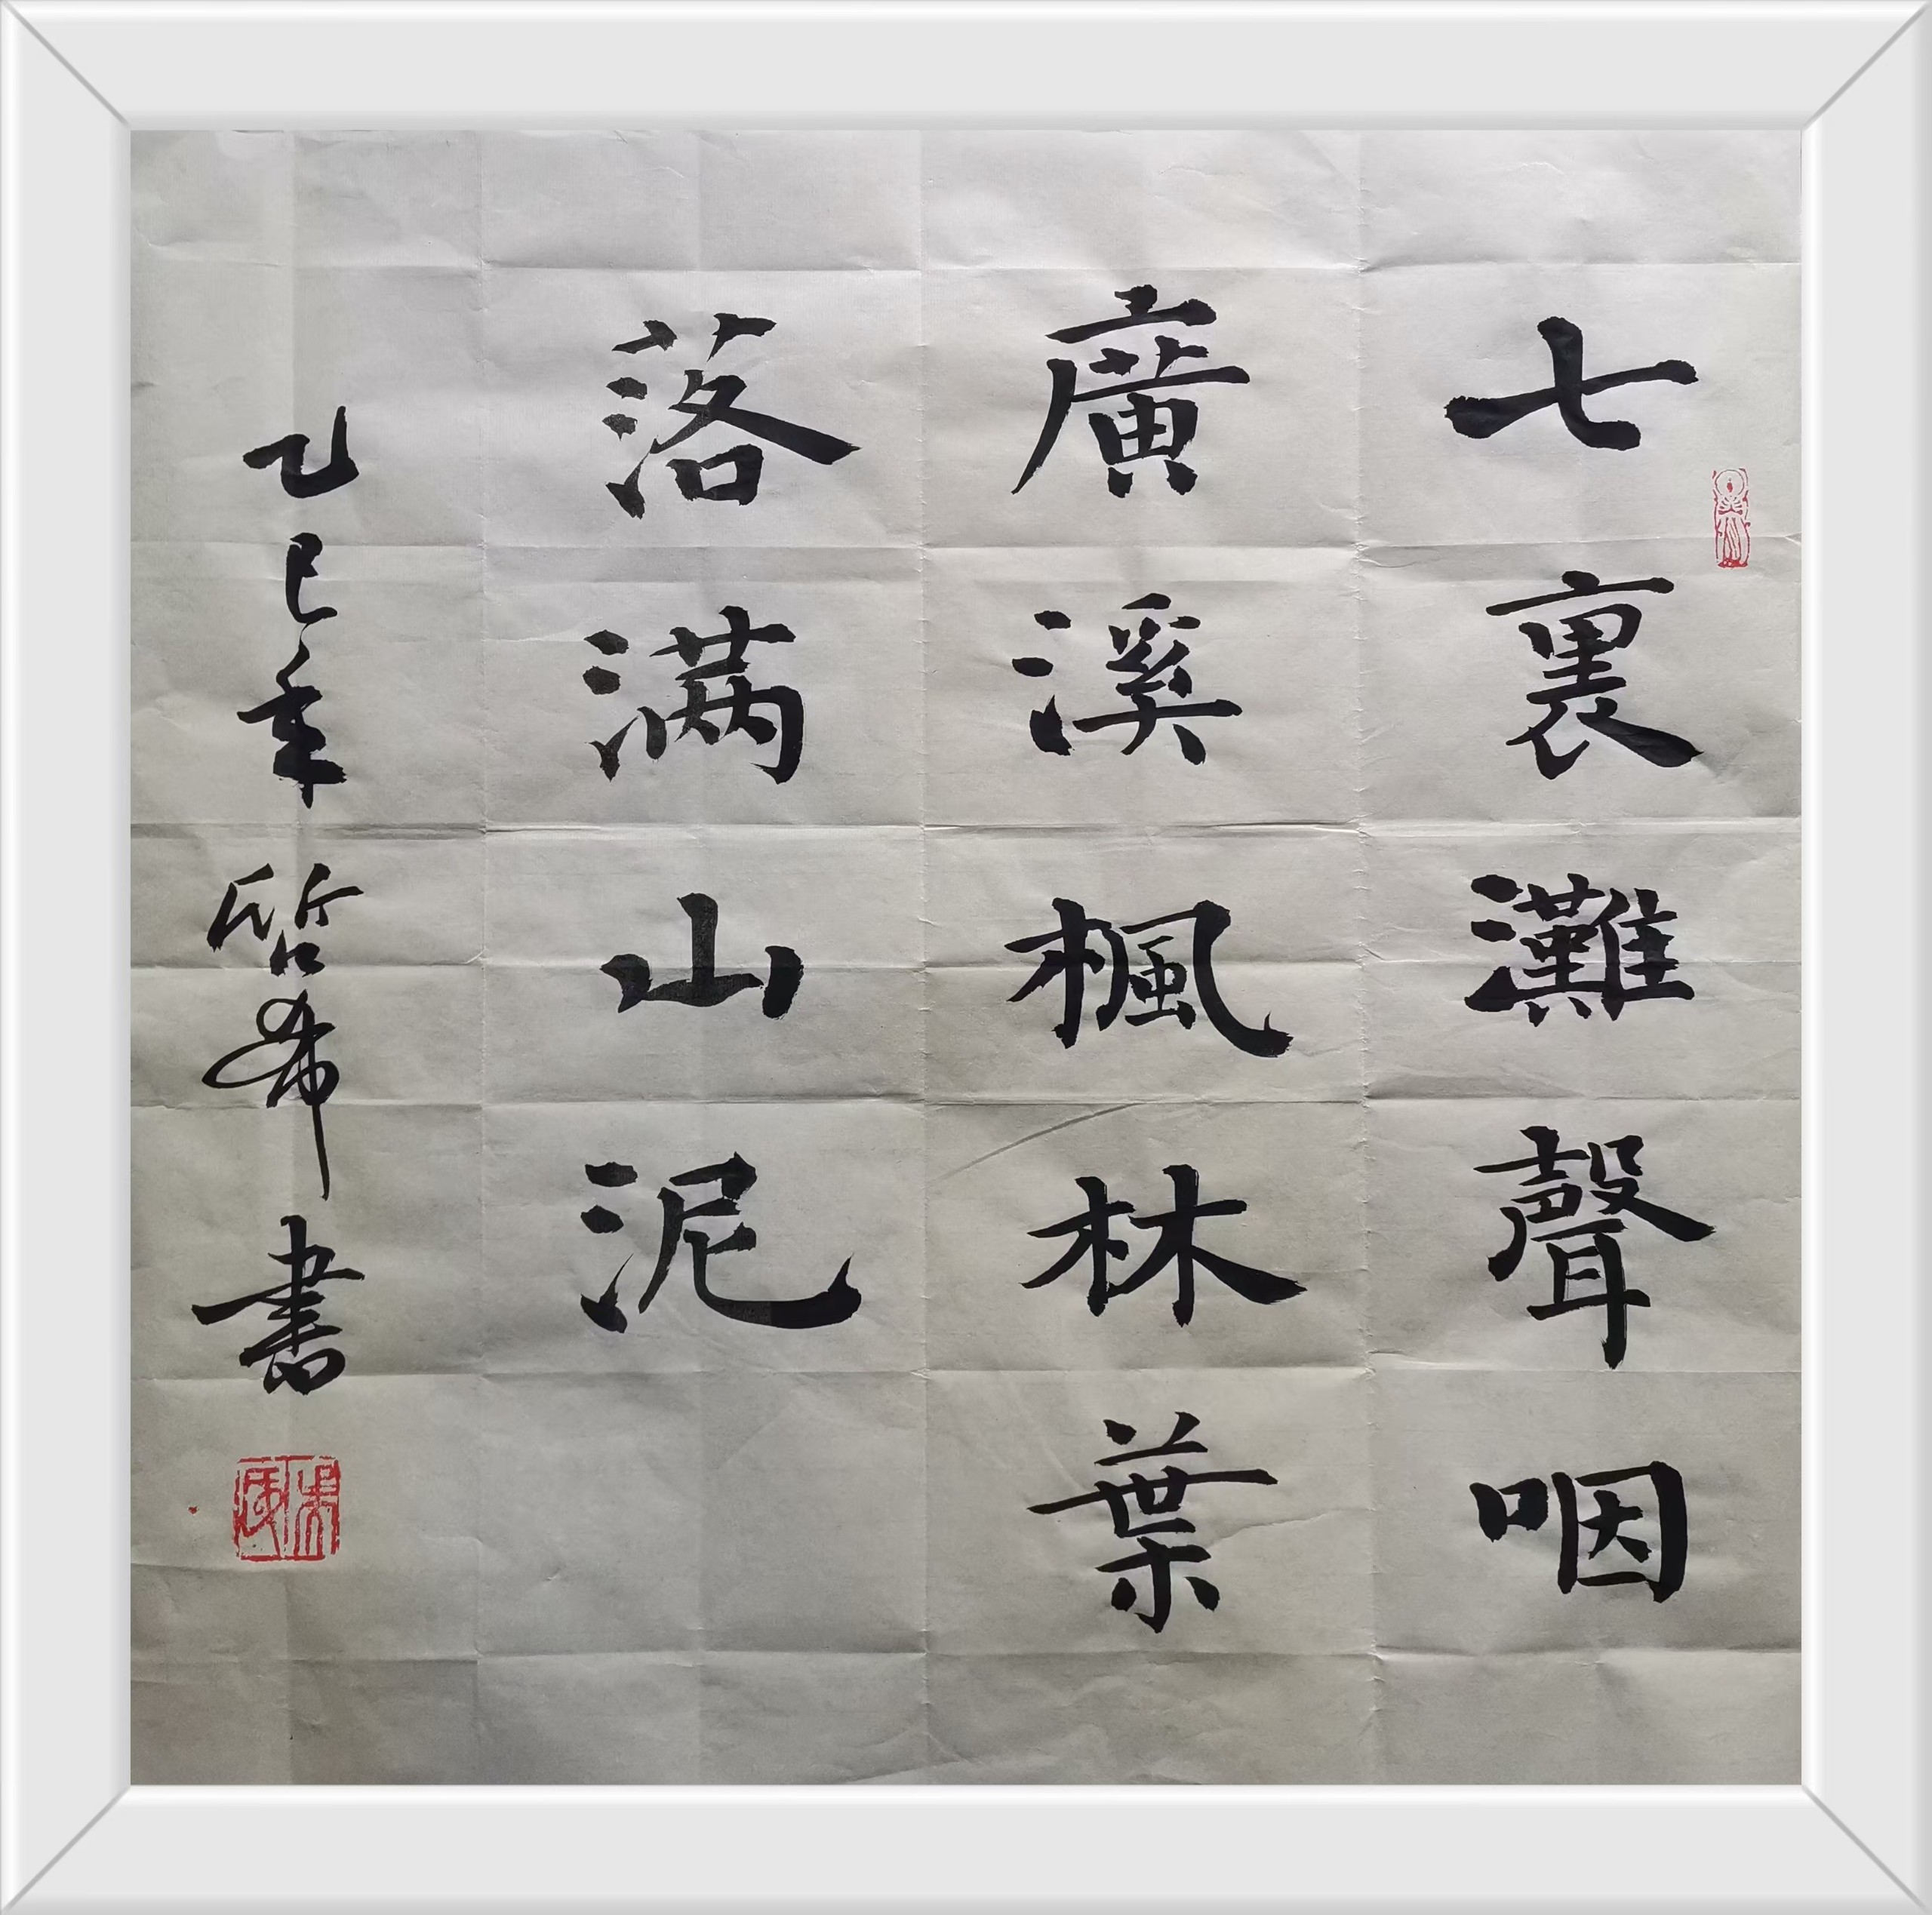 七裏灘聲咽
廣溪楓林葉
落满山泥
乙巳年 喆希書